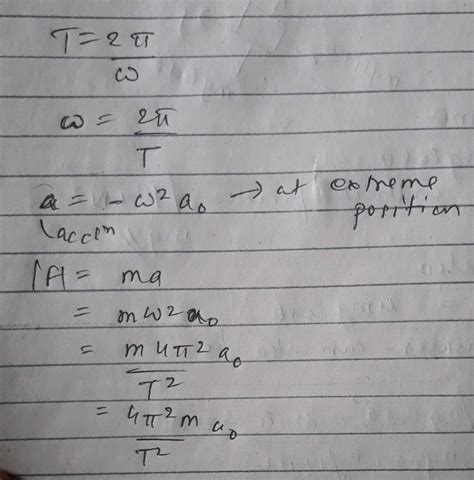 T = 2π/ω
ω = 2π/T
a = -ω² a₀ → at extreme position
(accen
|F| = ma
= mω² a₀
= m4π² a₀/T²
= 4π²m a₀/T²